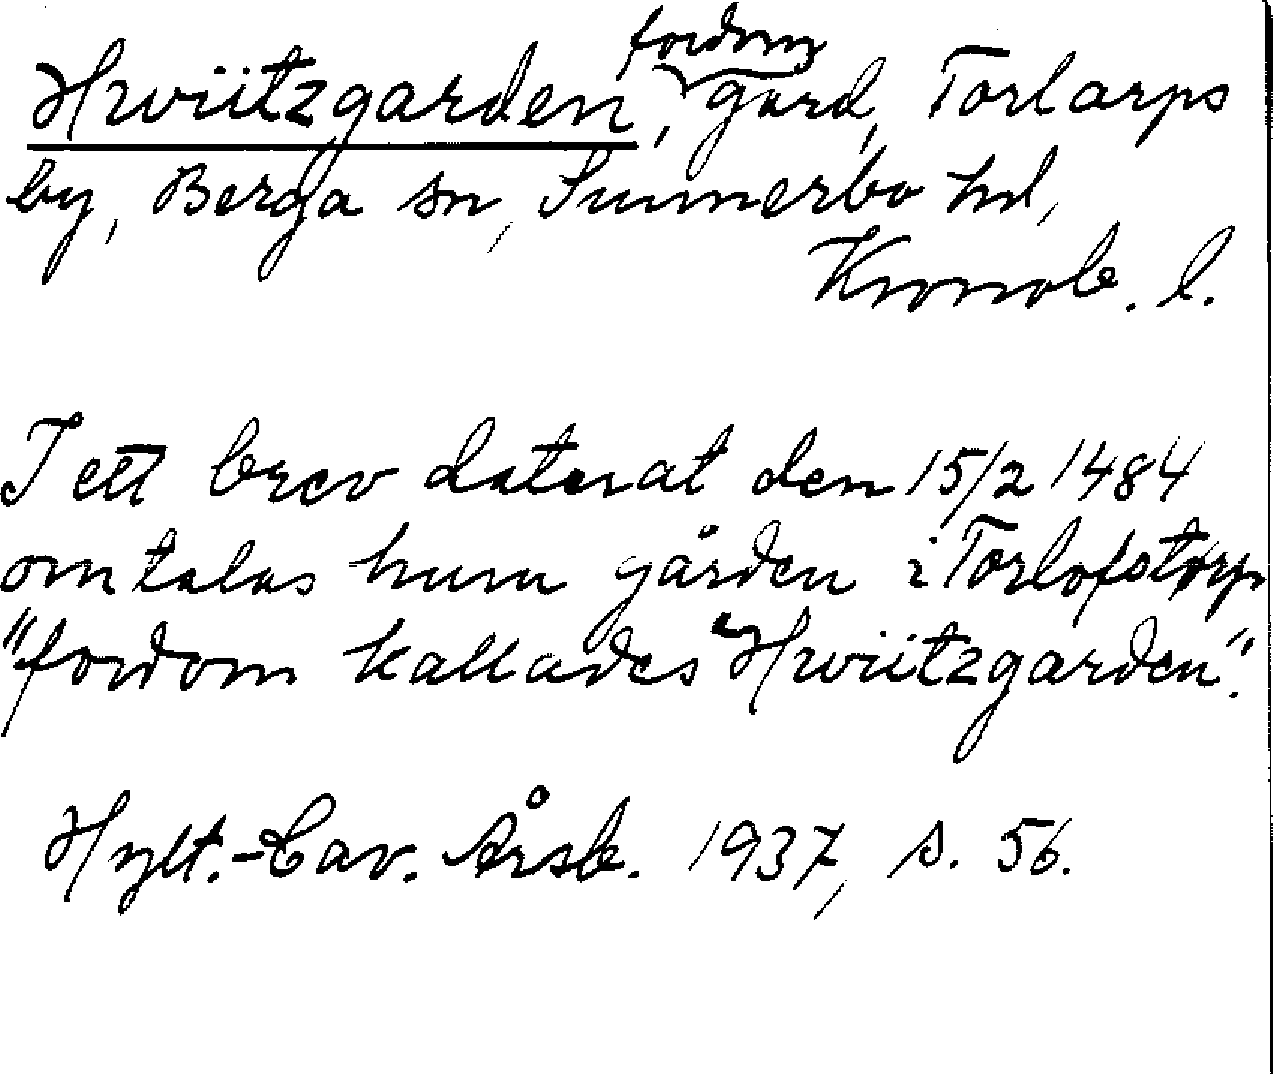 Hwiitzgarden, fordom gård, Torlarps
by, Berga sn, Sunnerbo hd,
Kronob. l.
I ett brev daterat den 15/2 1484
omtalas huru gården i Torlofstorp
"fordom kallades "Hwiitzgarden".
Hylt.-Cav. Årsb. 1937, s. 56.